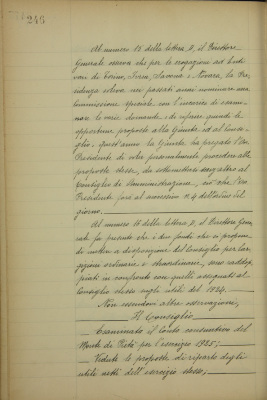 246
Al numero 15 della lettera D, il Direttore
Generale osserva che per le erogazioni ad Enti
vari di Torino, Ivrea, Savona e Novara, la Pre-
sidenza soleva nei passati anni nominare una
Commissione speciale con l'incarico di esami-
nare le varie domande, di riferire quindi le
opportune proposte alla Giunta ed al Consi-
glio. Quest'anno la Giunta ha pregato l'On.
Presidente di voler personalmente procedere alle
proposte stesse, da sottomettersi senz'altro al
Consiglio di Amministrazione, ciò che l'On.
Presidente farà al N. 4 dell'ordine del
giorno.
Al numero 16 della lettera D, il Direttore Gene-
rale fa presente che i due fondi che si propone
di mettere a disposizione del Consiglio per lar-
gizioni ordinarie e straordinarie, sono raddop-
piati in confronto con quelli assegnati al
Consiglio stesso sugli utili del 1924.
Non essendovi altre osservazioni,
Il Consiglio
Esaminato il Conto consuntivo del
Monte di Pietà per l'esercizio 1925;
Vedute le proposte di riparto degli
utili netti dell'esercizio stesso;